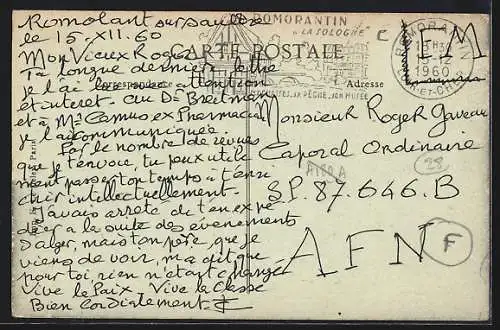 Romorantin sur Sauldre
le 15.XII.60
Mon Vieux Roger
Ta longue dernière lettre
je l'ai lue avec attention
et interet. au Dr Breitman
et à Mr Camus ex Pharmacien
je l'ai communiquée.
Par le nombre de revues
que je t'envoie tu peux utile
ment passer ton temps à t'ens
truir intellectuellement.
J'avais arrêté de t'en expé
dier à la suite des événements
d'alger, mais ton père, que je
viens de voir, m'a dit que
pour toi, rien n'était changé
Vive la Paix, Vive la Classe
Bien Cordialement
ROMORANTIN
"LA SOLOGNE"
SA PÊCHE, SON MUSÉE
CARTE POSTALE
Correspondance
Adresse
ROMORANTIN
15 H
15-12
1960
LOIR-ET-CHER
F M
Monsieur Roger Gaveau
Caporal Ordinaire
S.P. 87.646.B
A F N
28
F
Paris